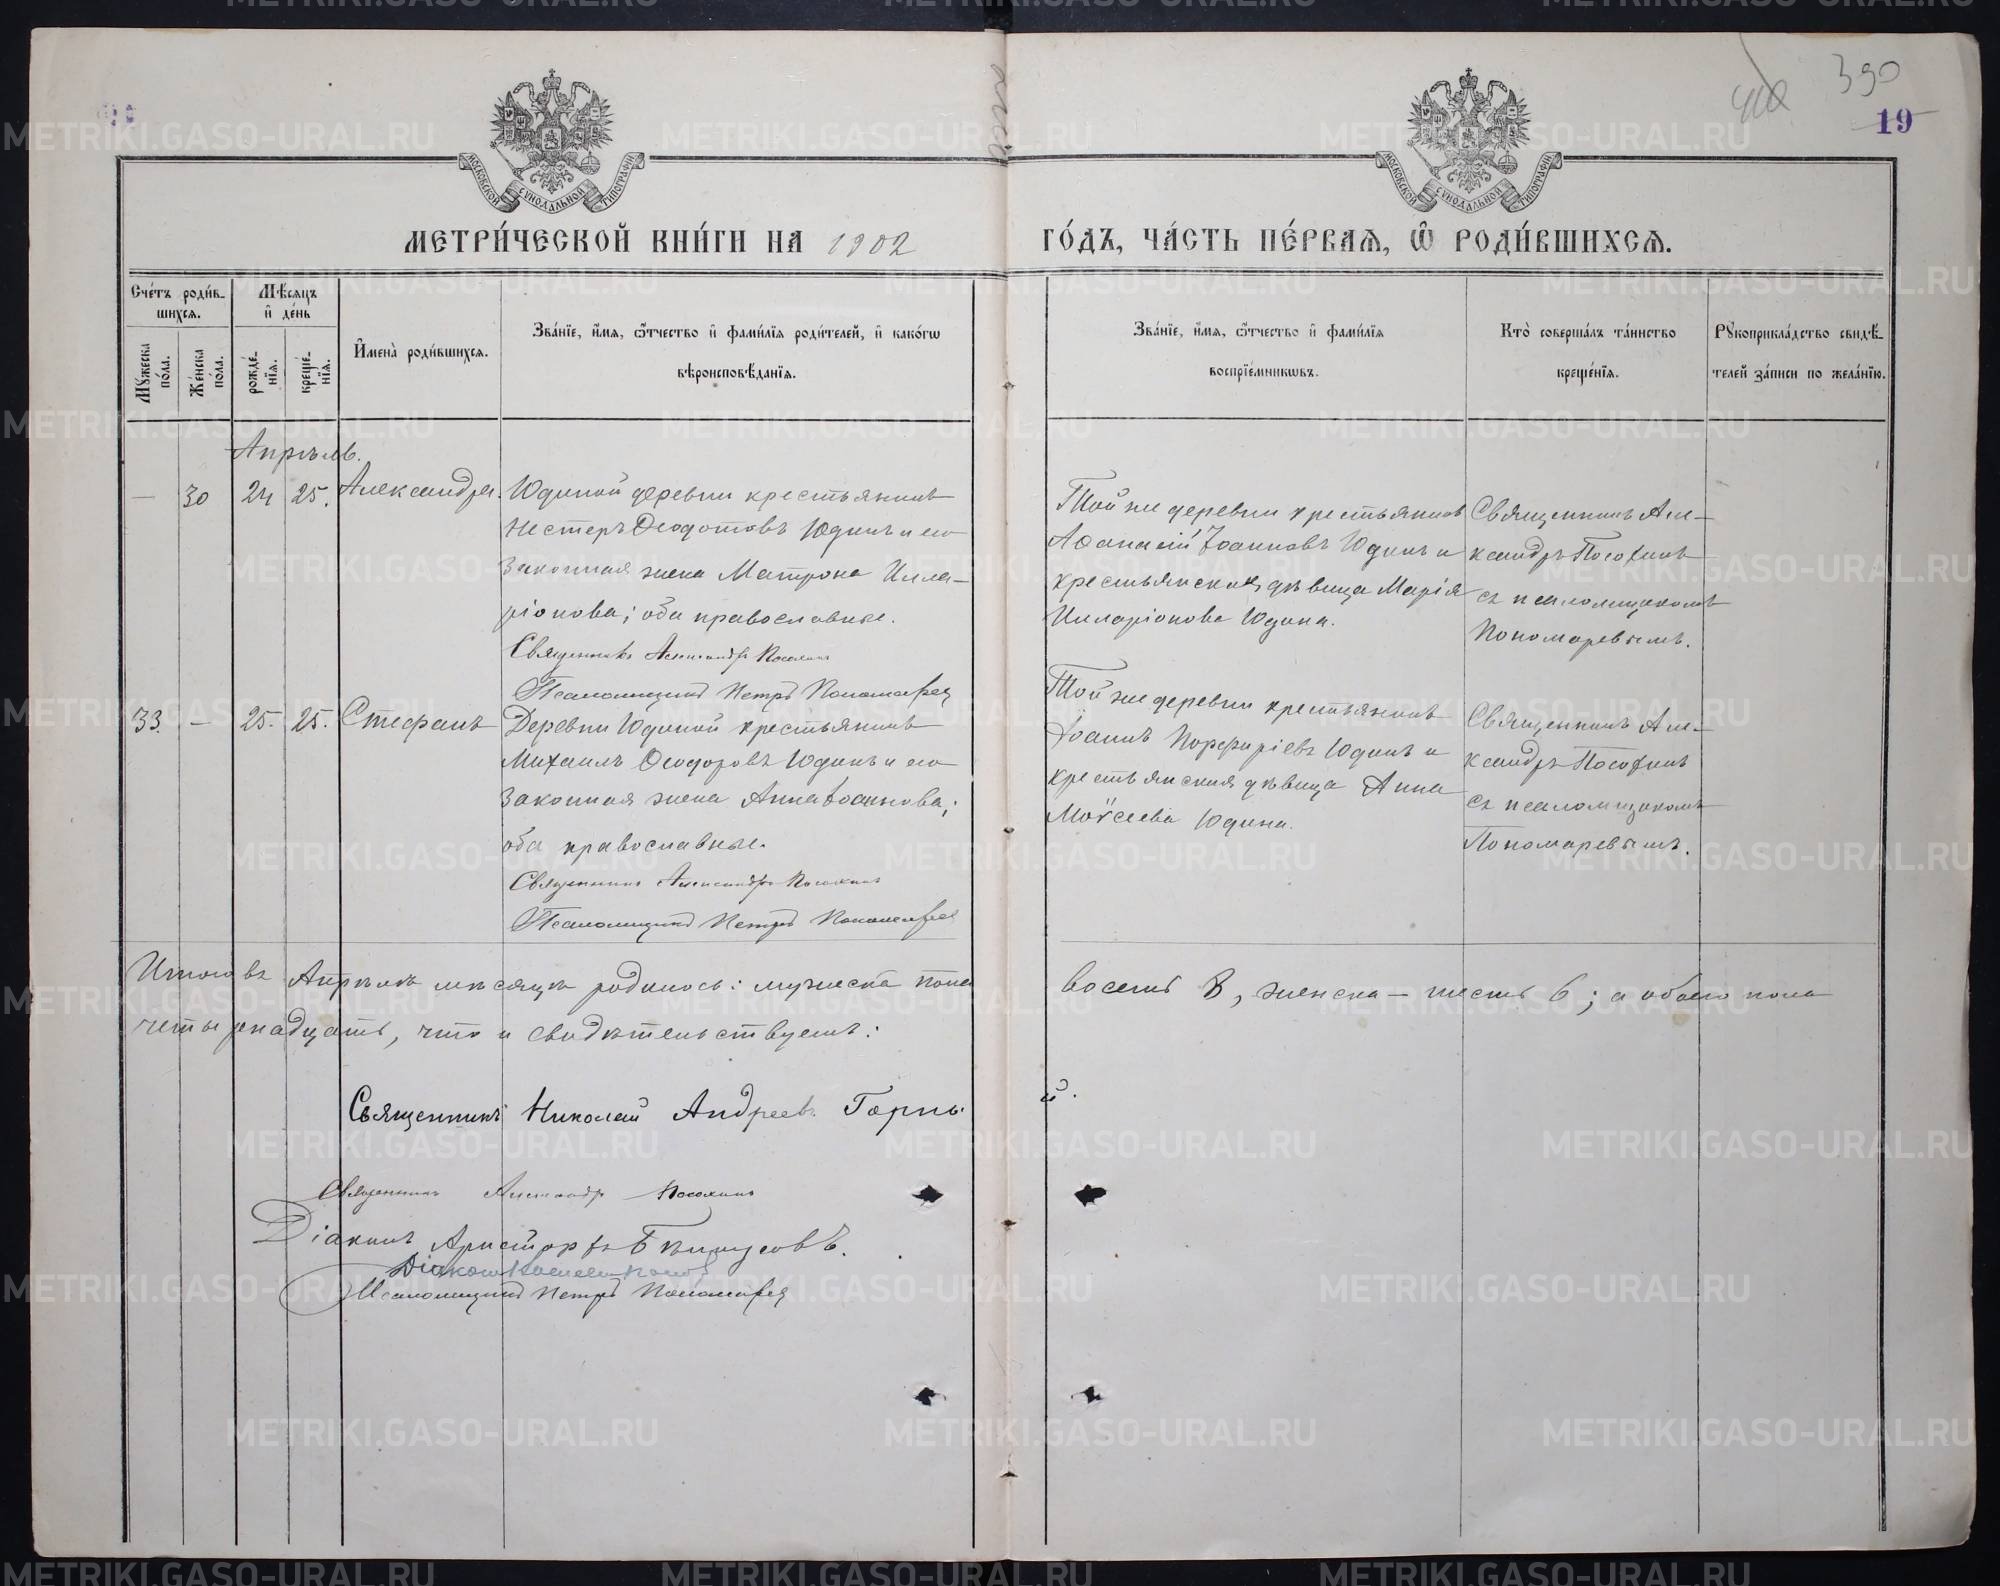 390
19
МОСКОВСКОЙ СУНОДАЛЬНОЙ ТИПОГРАФІИ
МОСКОВСКОЙ СУНОДАЛЬНОЙ ТИПОГРАФІИ
МЕТРИ́ЧЕСКОЙ КНИ́ГИ НА 1902 ГО́ДЪ, ЧА́СТЬ ПЕ́РВАЯ, Ѡ҆ РОДИ́ВШИХСЯ.
Сче́тъ роди́в-
шихся.
Мѣ́сяцъ
и҆ де́нь
Мꙋ́жеска по́ла.
Же́нска по́ла.
рожде́-
нїя.
креще́-
нїя.
И҆мена̀ роди́вшихся.
Зва́нїе, и҆́мя, ѻ҆́тчество и҆ фами́лїя роди́телей, и҆ како́гѡ
вѣроисповѣ́данїя.
Зва́нїе, и҆́мя, ѻ҆́тчество и҆ фами́лїя
воспрїе́мникѡвъ.
Кто̀ соверша́лъ та́инство
креще́нїя.
Рꙋкоприкла́дство свидѣ́-
телей за́писи по жела́нїю.
Апрѣль.
— 30 24 25. Александра.
Юдиной деревни крестьянинъ
Несторъ Ѳеодотовъ Юдинъ и его
законная жена Матрона Илла-
ріонова; оба православные.
Священникъ Александръ Посохинъ
Псаломщикъ Петръ Пономарев
Той же деревни крестьянинъ
Аѳанасій Іоанновъ Юдинъ и
крестьянская дѣвица Марія
Илларіонова Юдина.
Священникъ Але-
ксандръ Посохинъ
съ псаломщикомъ
Пономаревымъ.
33. — 25. 25. Стефанъ
Деревни Юдиной крестьянинъ
Михаилъ Ѳеодоровъ Юдинъ и его
законная жена Анна Іоаннова;
оба православные.
Священникъ Александръ Посохинъ
Псаломщикъ Петръ Пономарев
Той же деревни крестьянинъ
Іоаннъ Порфиріевъ Юдинъ и
крестьянская дѣвица Анна
Моѵсеева Юдина.
Священникъ Але-
ксандръ Посохинъ
съ псаломщикомъ
Пономаревымъ.
Итого въ Апрѣлѣ мѣсяцѣ родилось: мужеска пола восемь 8, женска — шесть 6; а обоего пола
четырнадцать, что и свидѣтельствуемъ:
Священникъ Николай Андреевъ Горны й.
Священникъ Александръ Посохинъ
Діаконъ Аристархъ
Діаконъ
Псаломщикъ Петръ Пономарев
METRIKI.GASO-URAL.RU